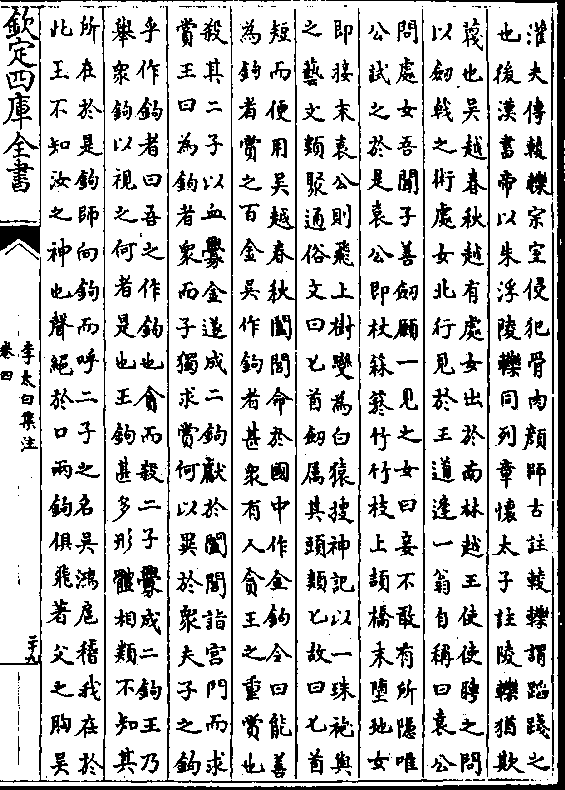 灌夫傳輘轢宗室侵犯骨肉顔師古註輘轢謂蹈踐之
也後漢書帝以朱浮陵轢同列章懷太子註陵轢猶欺
蔑也吳越春秋越有處女出於南林越王使使聘之問
以劒戟之術處女北行見於王道逢一翁自稱曰袁公
問處女吾聞子善劒願一見之女曰妾不敢有所隱唯
公試之於是袁公即杖箖箊竹竹枝上頡橋末墮地女
即接末袁公則飛上樹變為白猿搜神記以一珠袍與
之藝文類聚通俗文曰匕首劒屬其頭類匕故曰匕首
短而便用吳越春秋闔閭命於國中作金鈎令曰能善
為鈎者賞之百金吳作鈎者甚衆有人貪王之重賞也
殺其二子以血釁金遂成二鈎獻於闔閭詣宮門而求
賞王曰為鈎者衆而子獨求賞何以異於衆夫子之鈎
乎作鈎者曰吾之作鈎也貪而殺二子釁成二鈎王乃
舉衆鈎以視之何者是也王鈎甚多形體相類不知其
所在於是鈎師向鈎而呼二子之名吳鴻扈稽我在於
此王不知汝之神也聲絶於口兩鈎俱飛著父之胸吳
欽定四庫全書
李太白集注
卷四
二十九